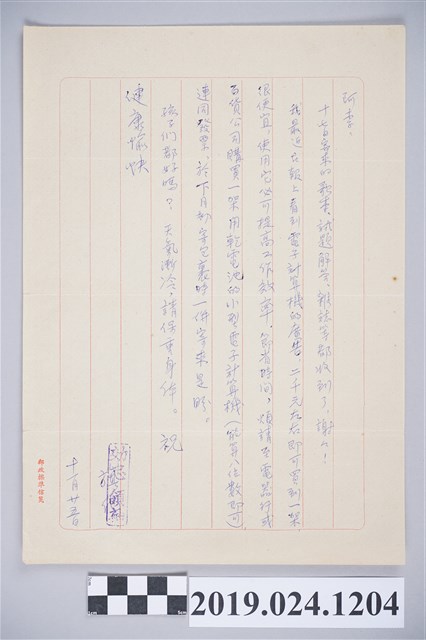 阿李：
十七日寄來的歌本、試題解答、雜誌等都收到了，謝謝！
我最近在報上看到電子計算機的廣告，二千元左右即可買到一架，
很便宜，使用它必可提高工作效率、節省時間，煩請在電器行或
百貨公司購買一架用乾電池的小型電子計算機（能算八位數即可）
連同發票，於下月初寄包裹時一併寄來是盼。
孩子們都好嗎？天氣漸冷，請保重身体。 祝
健康愉快
十一月廿五日
郵政標準信箋
2019.024.1204